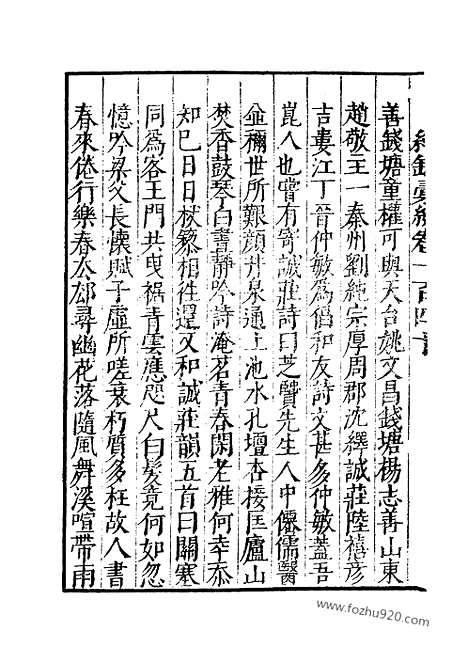 善錢塘童權可與天台姚文昌錢塘楊志善山東
趙敬主一秦州劉純宗厚周郡沈繹誠莊陸禧彦
吉婁江丁晉仲敏為倡和友詩文甚多仲敏蓋吾
崑人也嘗有寄誠莊詩曰芝醫先生人中僊儒醫
並稱世所艱顔井泉通上池水孔壇杏接匡廬山
焚香鼓琴白晝靜吟詩淹茗青春閑老雅何幸忝
知已日日杖藜相徃還又和誠莊韻五首曰關塞
同為客王門共曳裾青雲應咫尺白髮竟何如忽
憶吟梁父長懷賦子虛所嗟衰朽質多枉故人書
春來倦行樂春太郊尋幽花落隨風舞溪喧帶雨
www.fozhu920.com